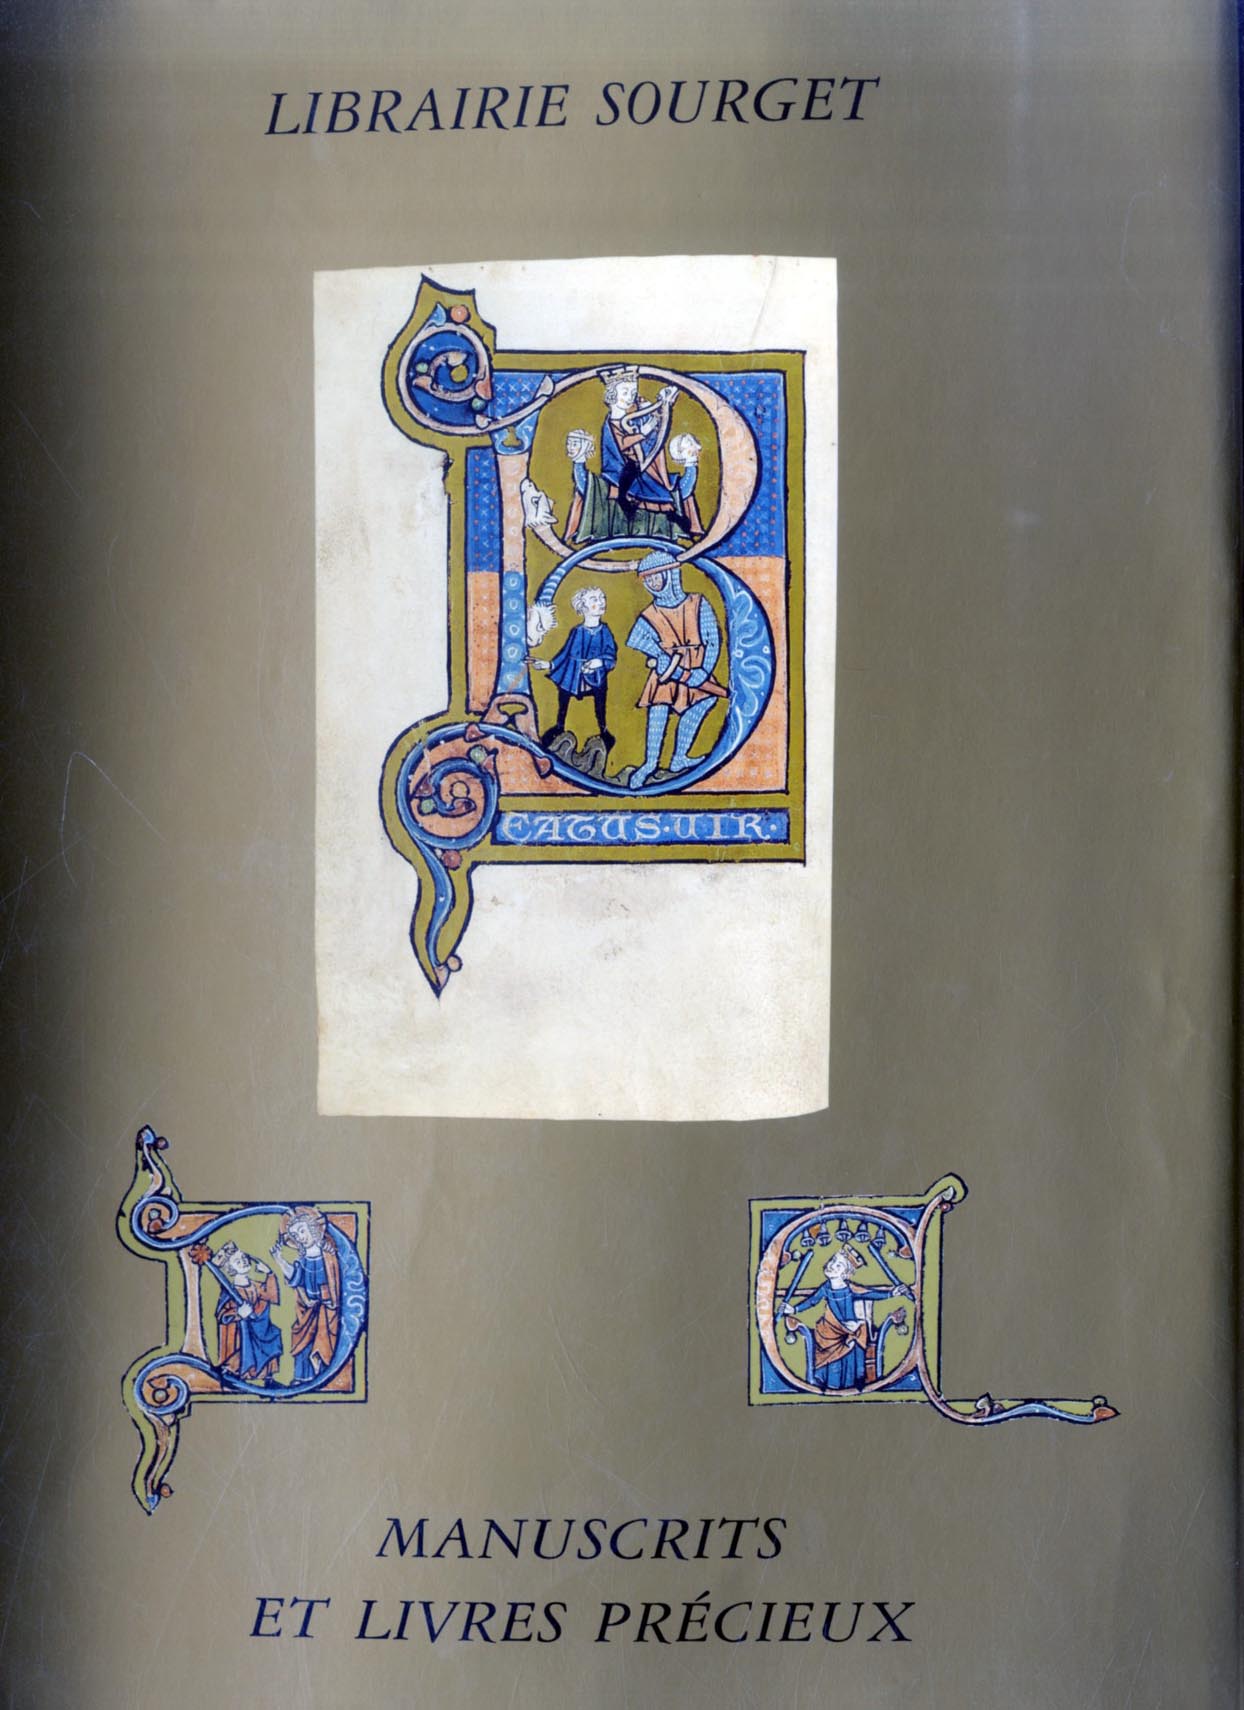 LIBRAIRIE SOURGET
B
EATUS·UIR·
MANUSCRITS
ET LIVRES PRÉCIEUX